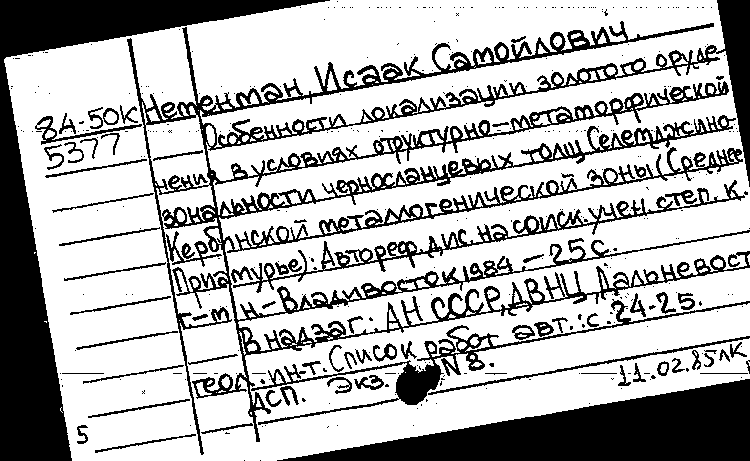 Нетенман, Исаак Самойлович.
84-50К
5377
Особенности локализации золотого оруде-
нения в условиях структурно-метаморфической
зональности черносланцевых толщ Селемджино-
Кербинской металлогенической зоны (Среднее
Приамурье): Автореф. дис. на соиск. учен. степ. к.
г.-м. н. - Владивосток, 1984. - 25 с.
В надзаг.: АН СССР, ДВНЦ, Дальневост.
геол. ин-т. Список работ авт.: с. 24-25.
ДСП. Экз. N 8.
11.02.85 ЛК
5